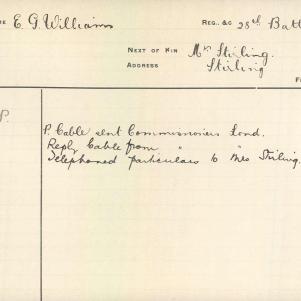 E. G. Williams
REG., &C 28th Batt
NEXT OF KIN Mr Stirling.
ADDRESS Stirling
P.
P. Cable sent Commissioners Lond.
Reply Cable from "  "
Telephoned particulars to Mrs Stirling